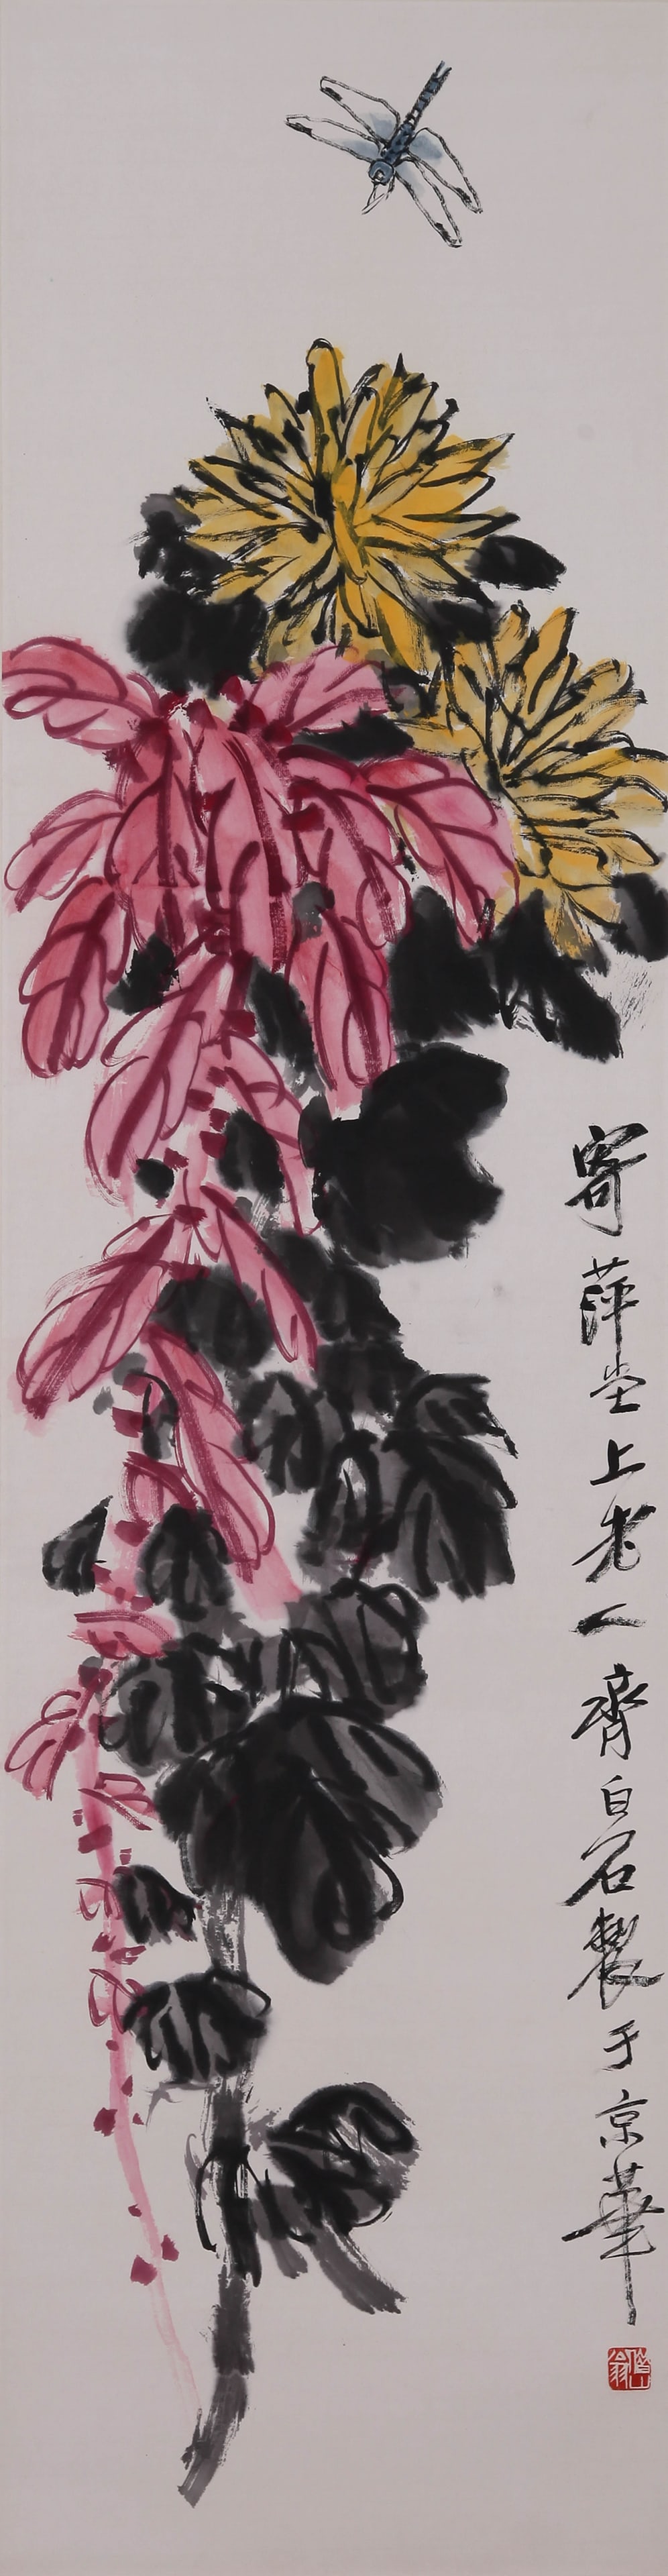 寄萍堂上老人齊白石製于京華
借山翁